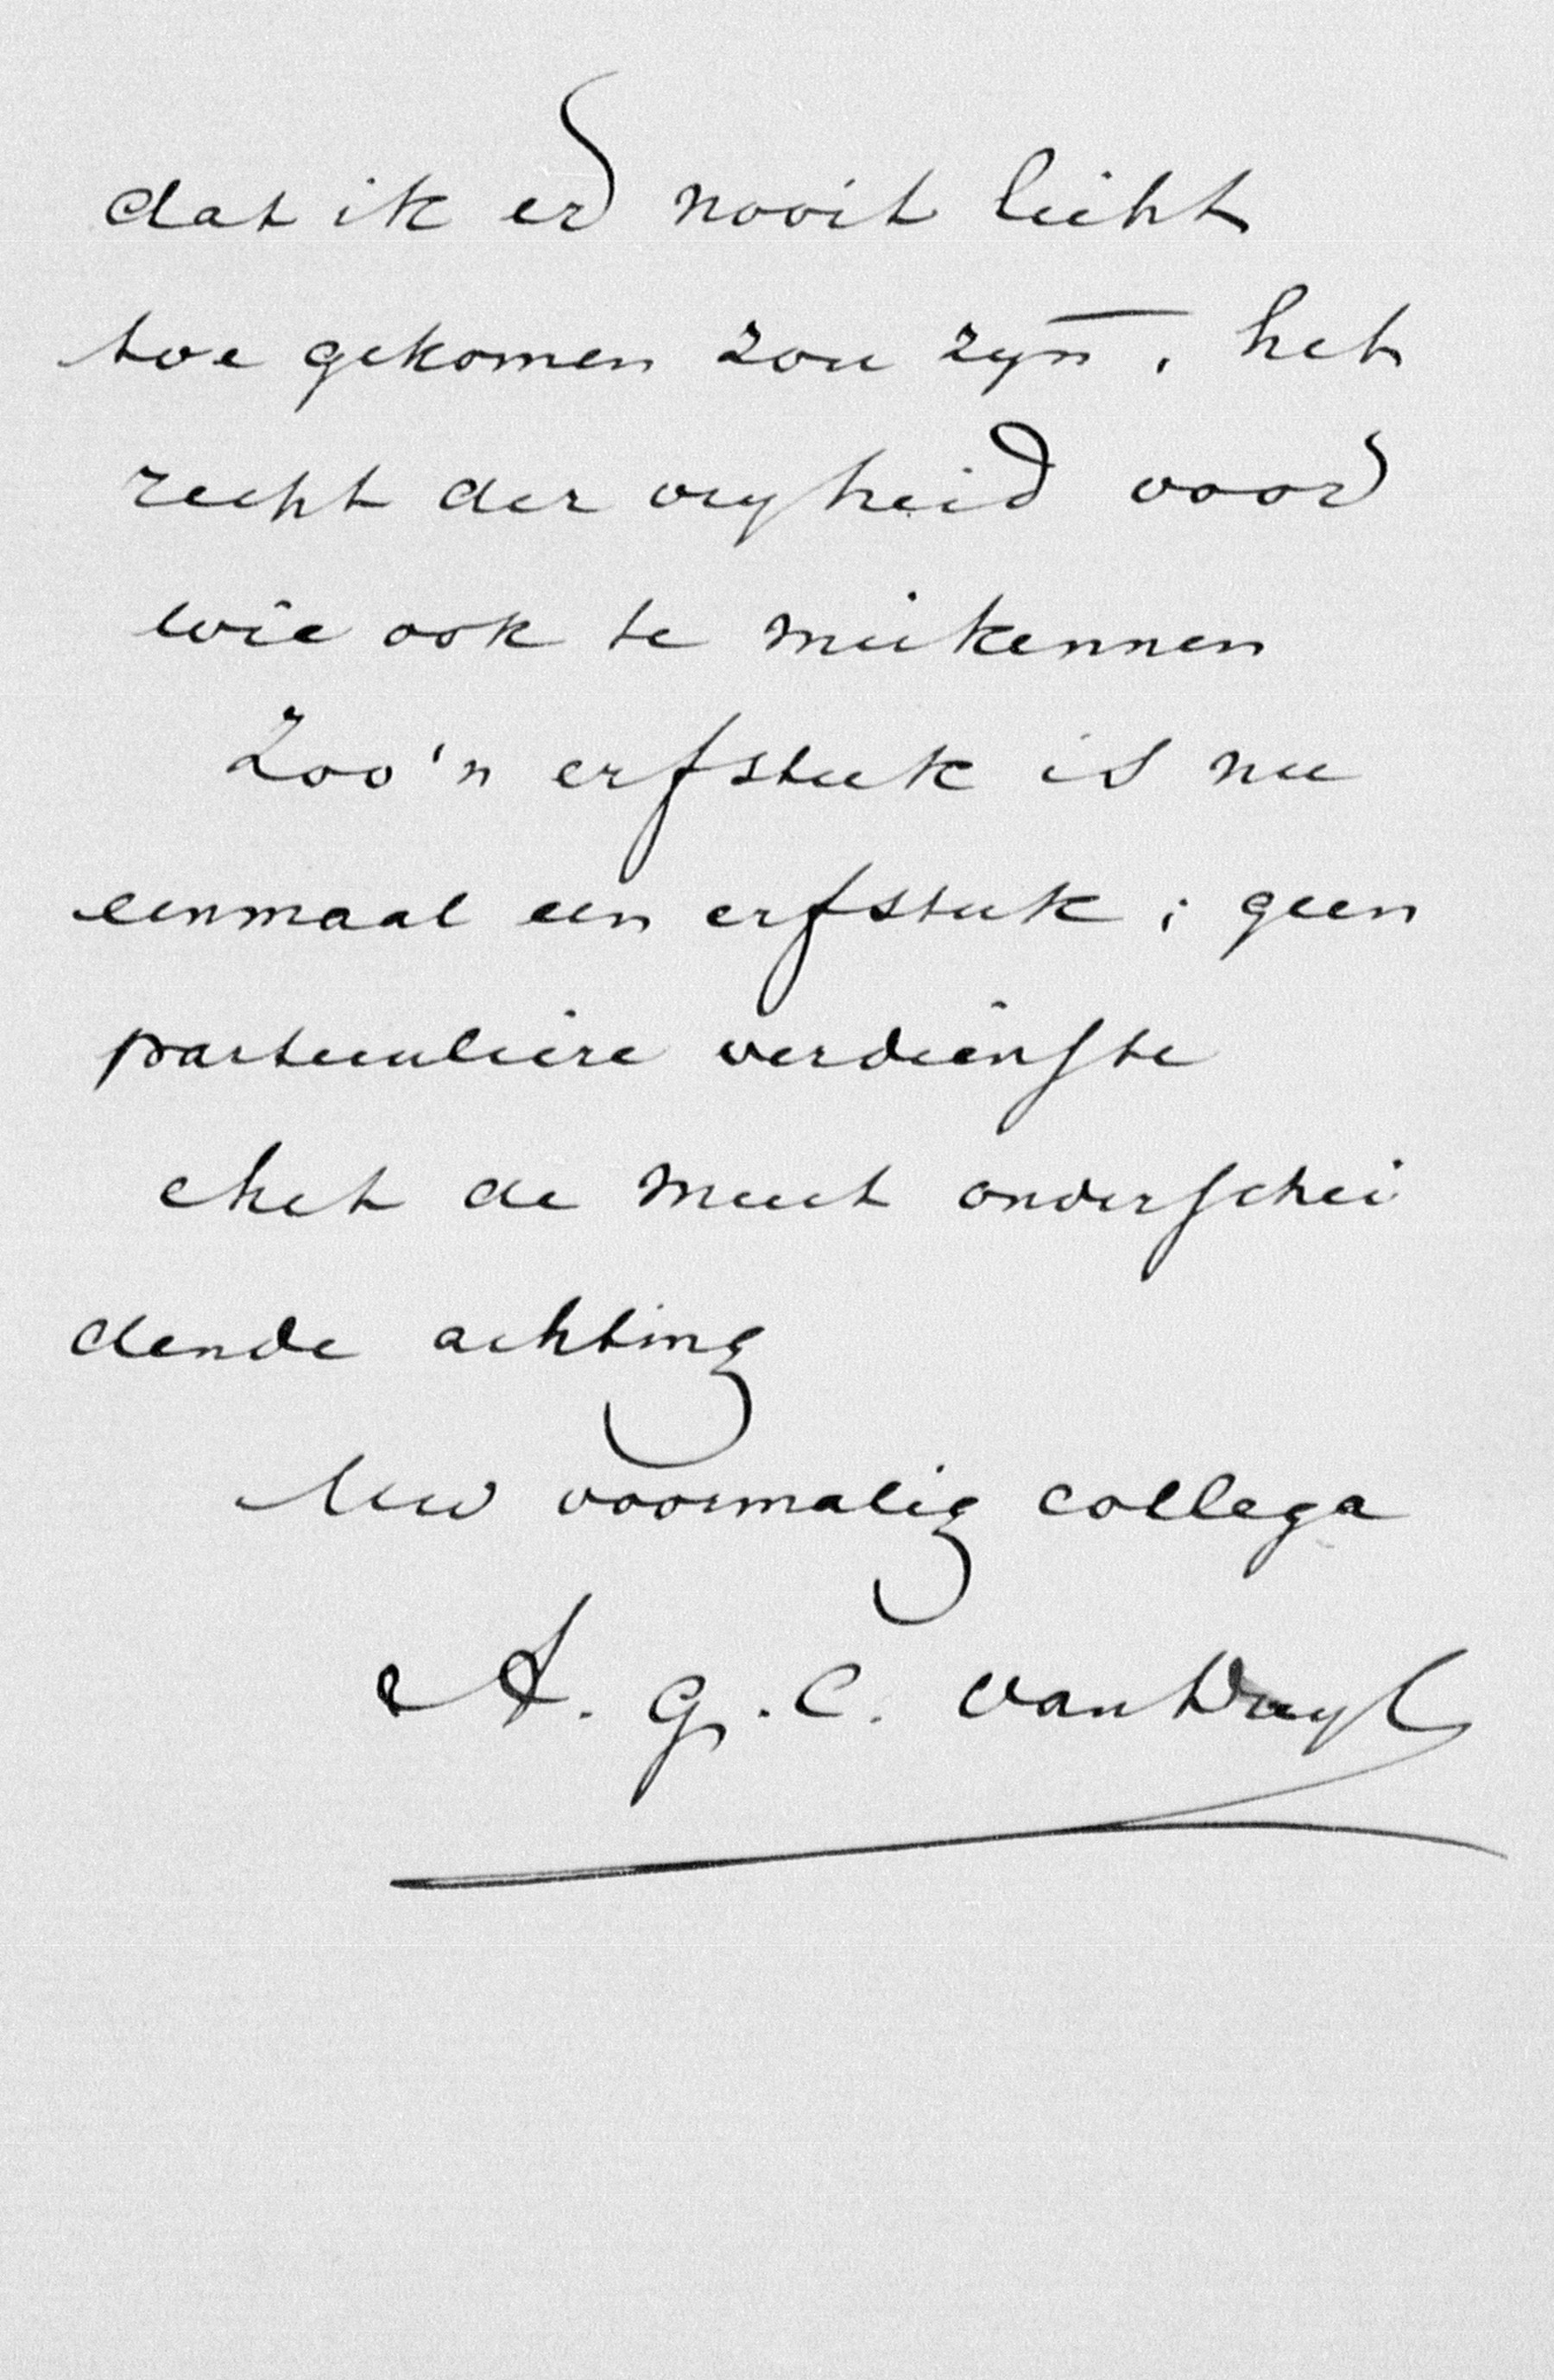 dat ik er nooit licht
toe gekomen zou zyn, het
recht der vryheid voor
wie ook te miskennen
Zoo'n erfstuk is nu
eenmaal een erfstuk; geen
particuliere verdienste
Met de meest onderschei
dende achting
Uw voormalig collega
A. G. C. van Duyl